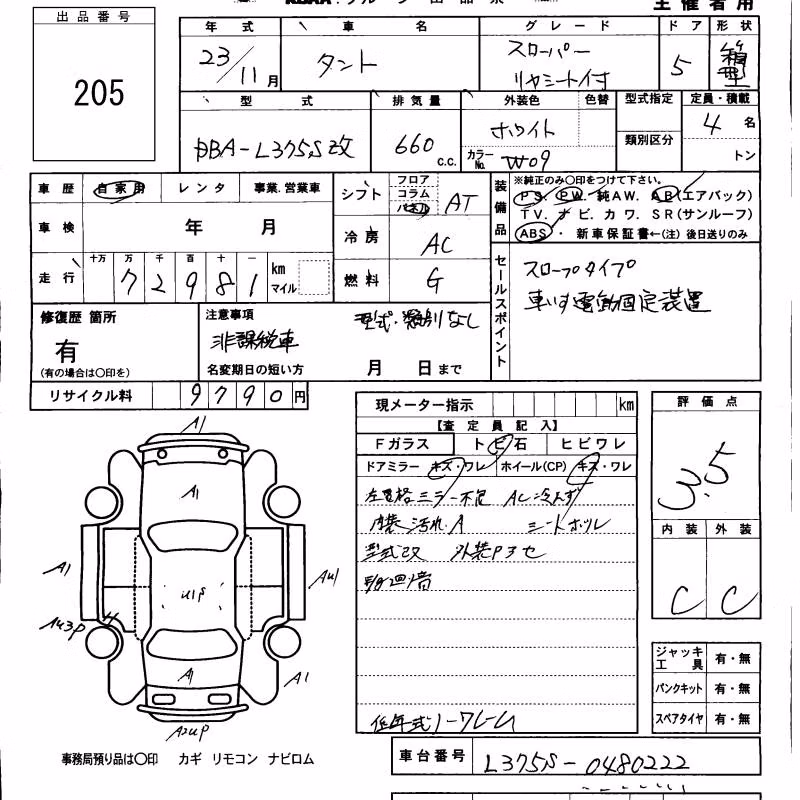 主催者用
出品番号
205
年式 車名 グレード ドア 形状
23/11月 タント スローパー リヤシート付 5 箱型
型式 排気量 外装色 色替 型式指定 定員・積載
DBA-L375S改 660 c.c. ホワイト カラーNo. W09 類別区分 4名 トン
車歴 自家用 レンタ 事業.営業車
車検 年 月
走行 十万 万 千 百 十 一
72981 km マイル
シフト フロア コラム パネル AT
冷房 AC
燃料 G
装備品 ※純正のみ〇印をつけて下さい。
PS. PW. 純AW. AB(エアバック)
TV. ナビ. カワ. SR(サンルーフ)
ABS・ 新車保証書←(注)後日送りのみ
セールスポイント
スロープタイプ
車いす電動固定装置
修復歴 箇所
有
(有の場合は〇印を)
注意事項 型式・類別なし
非課税車
名変期日の短い方 月 日まで
リサイクル料 9790円
現メーター指示 km
【査定員記入】
Fガラス トビ石 ヒビワレ
ドアミラー キズ・ワレ ホイール(CP) キズ・ワレ
ミラー不良 AC冷えず
内装汚れ.A シートホツレ
型式改 外装Pヨセ
低年式ノークレーム
評価点
3.5
内装 外装
C C
A1
A1
A1
AU1
U1P
AU3P
A1
A1
A2UP
ジャッキ工具 有・無
パンクキット 有・無
スペアタイヤ 有・無
事務局預り品は〇印 カギ リモコン ナビロム
車台番号 L375S-0480222